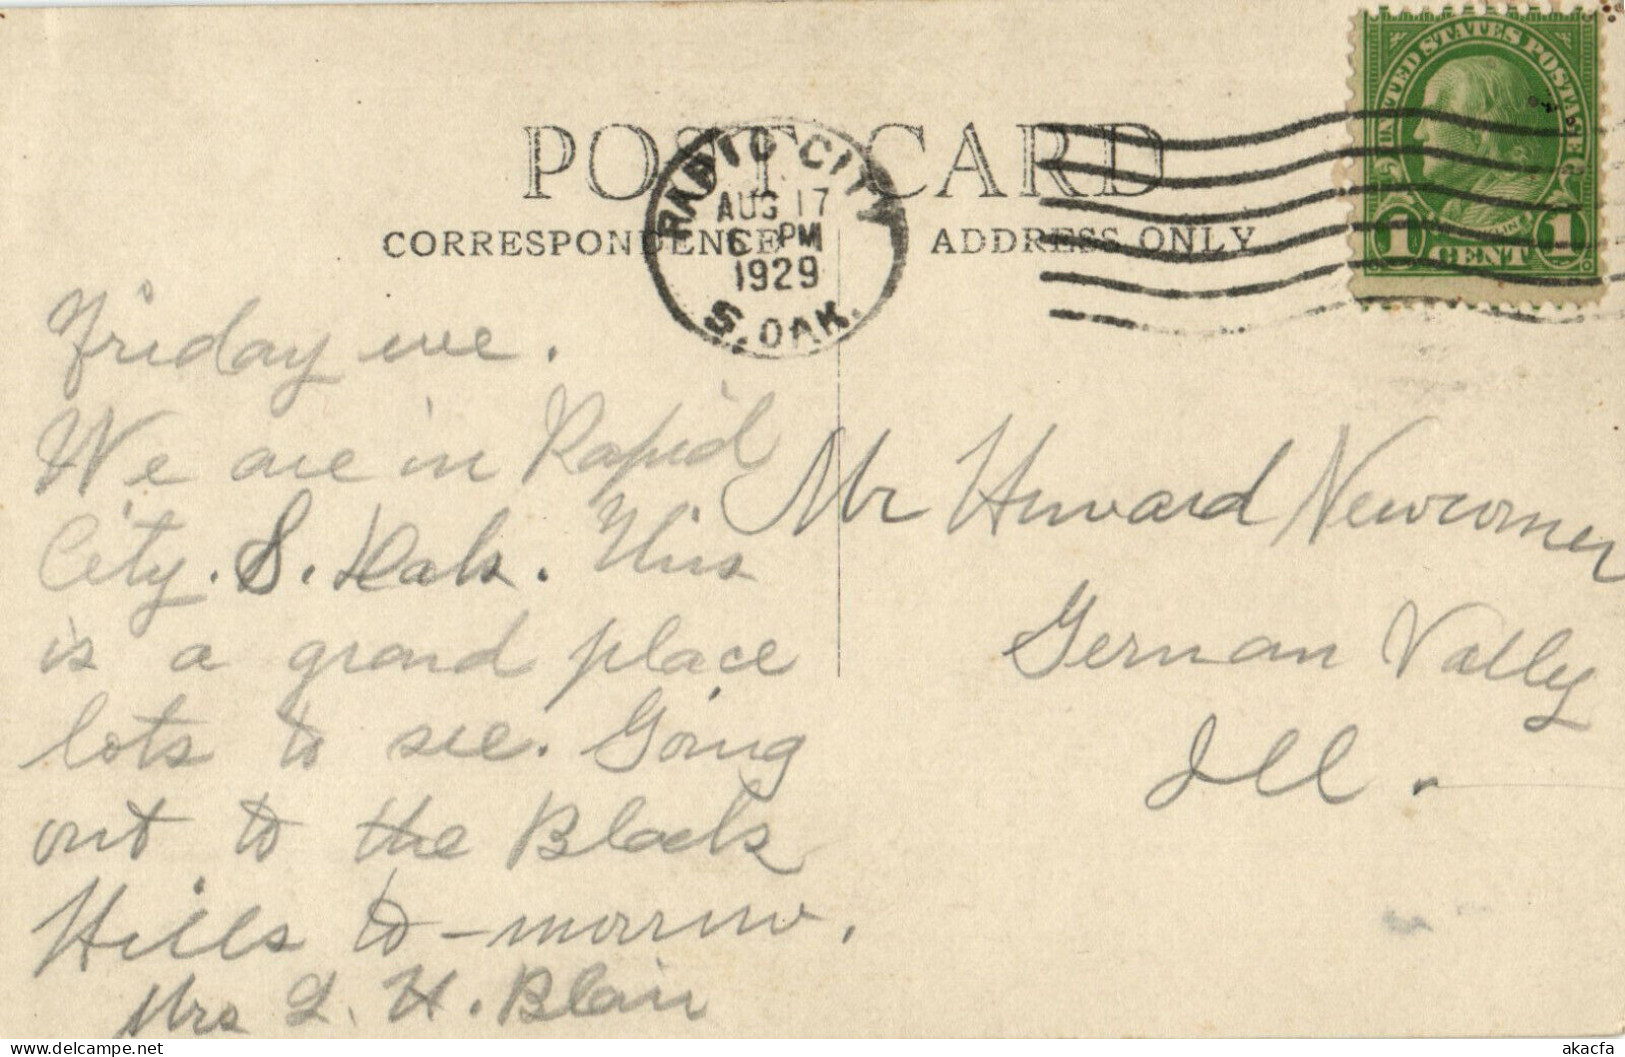 POST CARD
CORRESPONDENCE
ADDRESS ONLY
RAPID CITY
AUG 17
6 PM
1929
S. DAK.
UNITED STATES POSTAGE
FRANKLIN
1 CENT 1
Friday eve.
We are in Rapid
City. S. Dak. This
is a grand place
lots to see. Going
out to the Black
Hills to-morrow.
Mrs L. H. Blair
Mr Howard Newcomer
German Vally
Ill.
akacfa